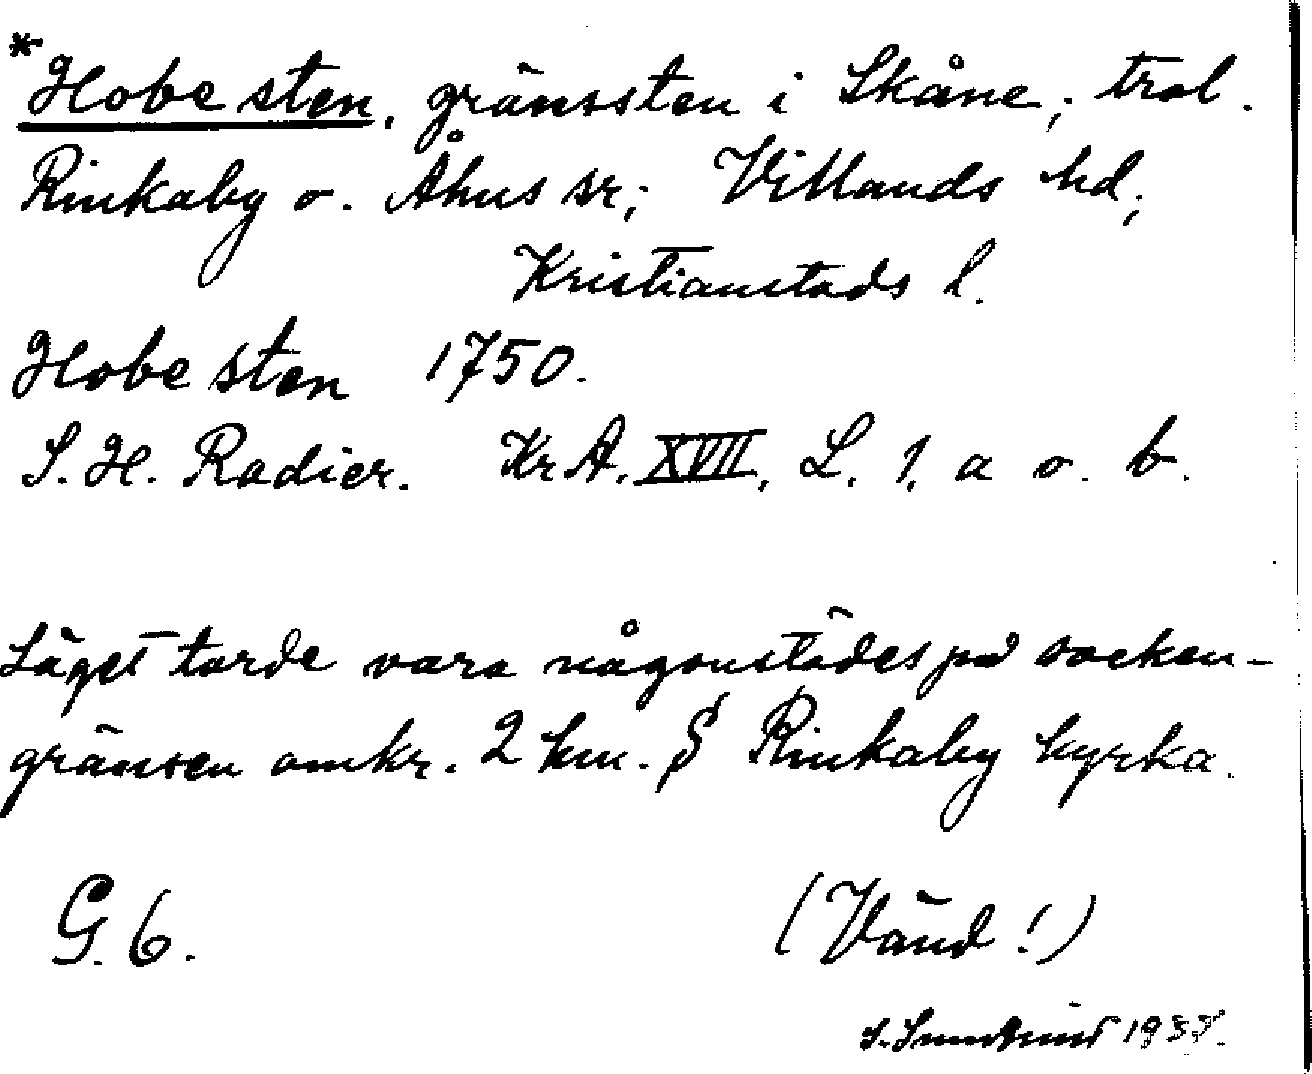 *Hobe sten, gränssten i Skåne; trol.
Rinkaby o. Åhus sr; Villands hd;
Kristianstads l.
Hobe sten 1750.
S. H. Radier. Kr A. XVII, L. 1, a o. b.
Läget torde vara någonstädes på socken-
gränsen omkr. 2 km. S Rinkaby kyrka.
G. 6.
(Vänd!)